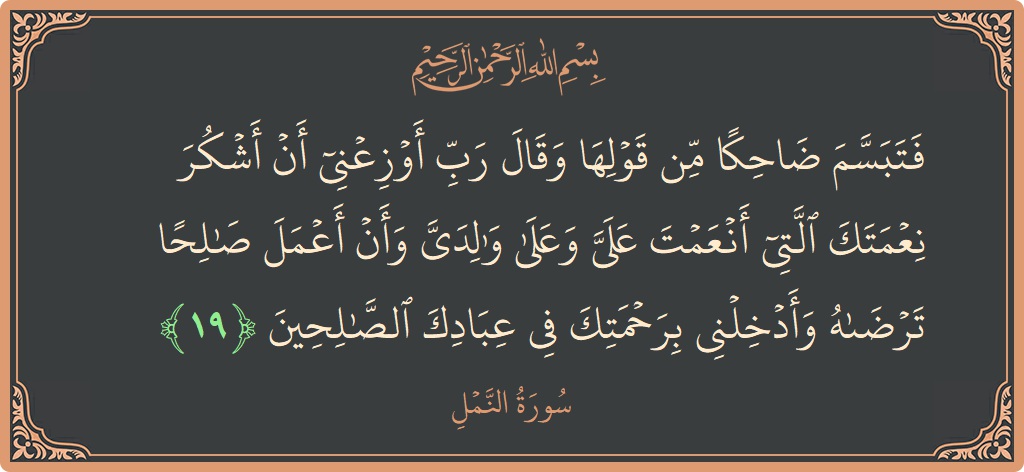 بِسْمِ اللَّهِ الرَّحْمَٰنِ الرَّحِيمِ
فَتَبَسَّمَ ضَاحِكًا مِّن قَوْلِهَا وَقَالَ رَبِّ أَوْزِعْنِىٓ أَنْ أَشْكُرَ
نِعْمَتَكَ ٱلَّتِىٓ أَنْعَمْتَ عَلَىَّ وَعَلَىٰ وَٰلِدَىَّ وَأَنْ أَعْمَلَ صَٰلِحًا
تَرْضَىٰهُ وَأَدْخِلْنِى بِرَحْمَتِكَ فِى عِبَادِكَ ٱلصَّٰلِحِينَ ﴿١٩﴾
سُورَةُ النَّمْلِ